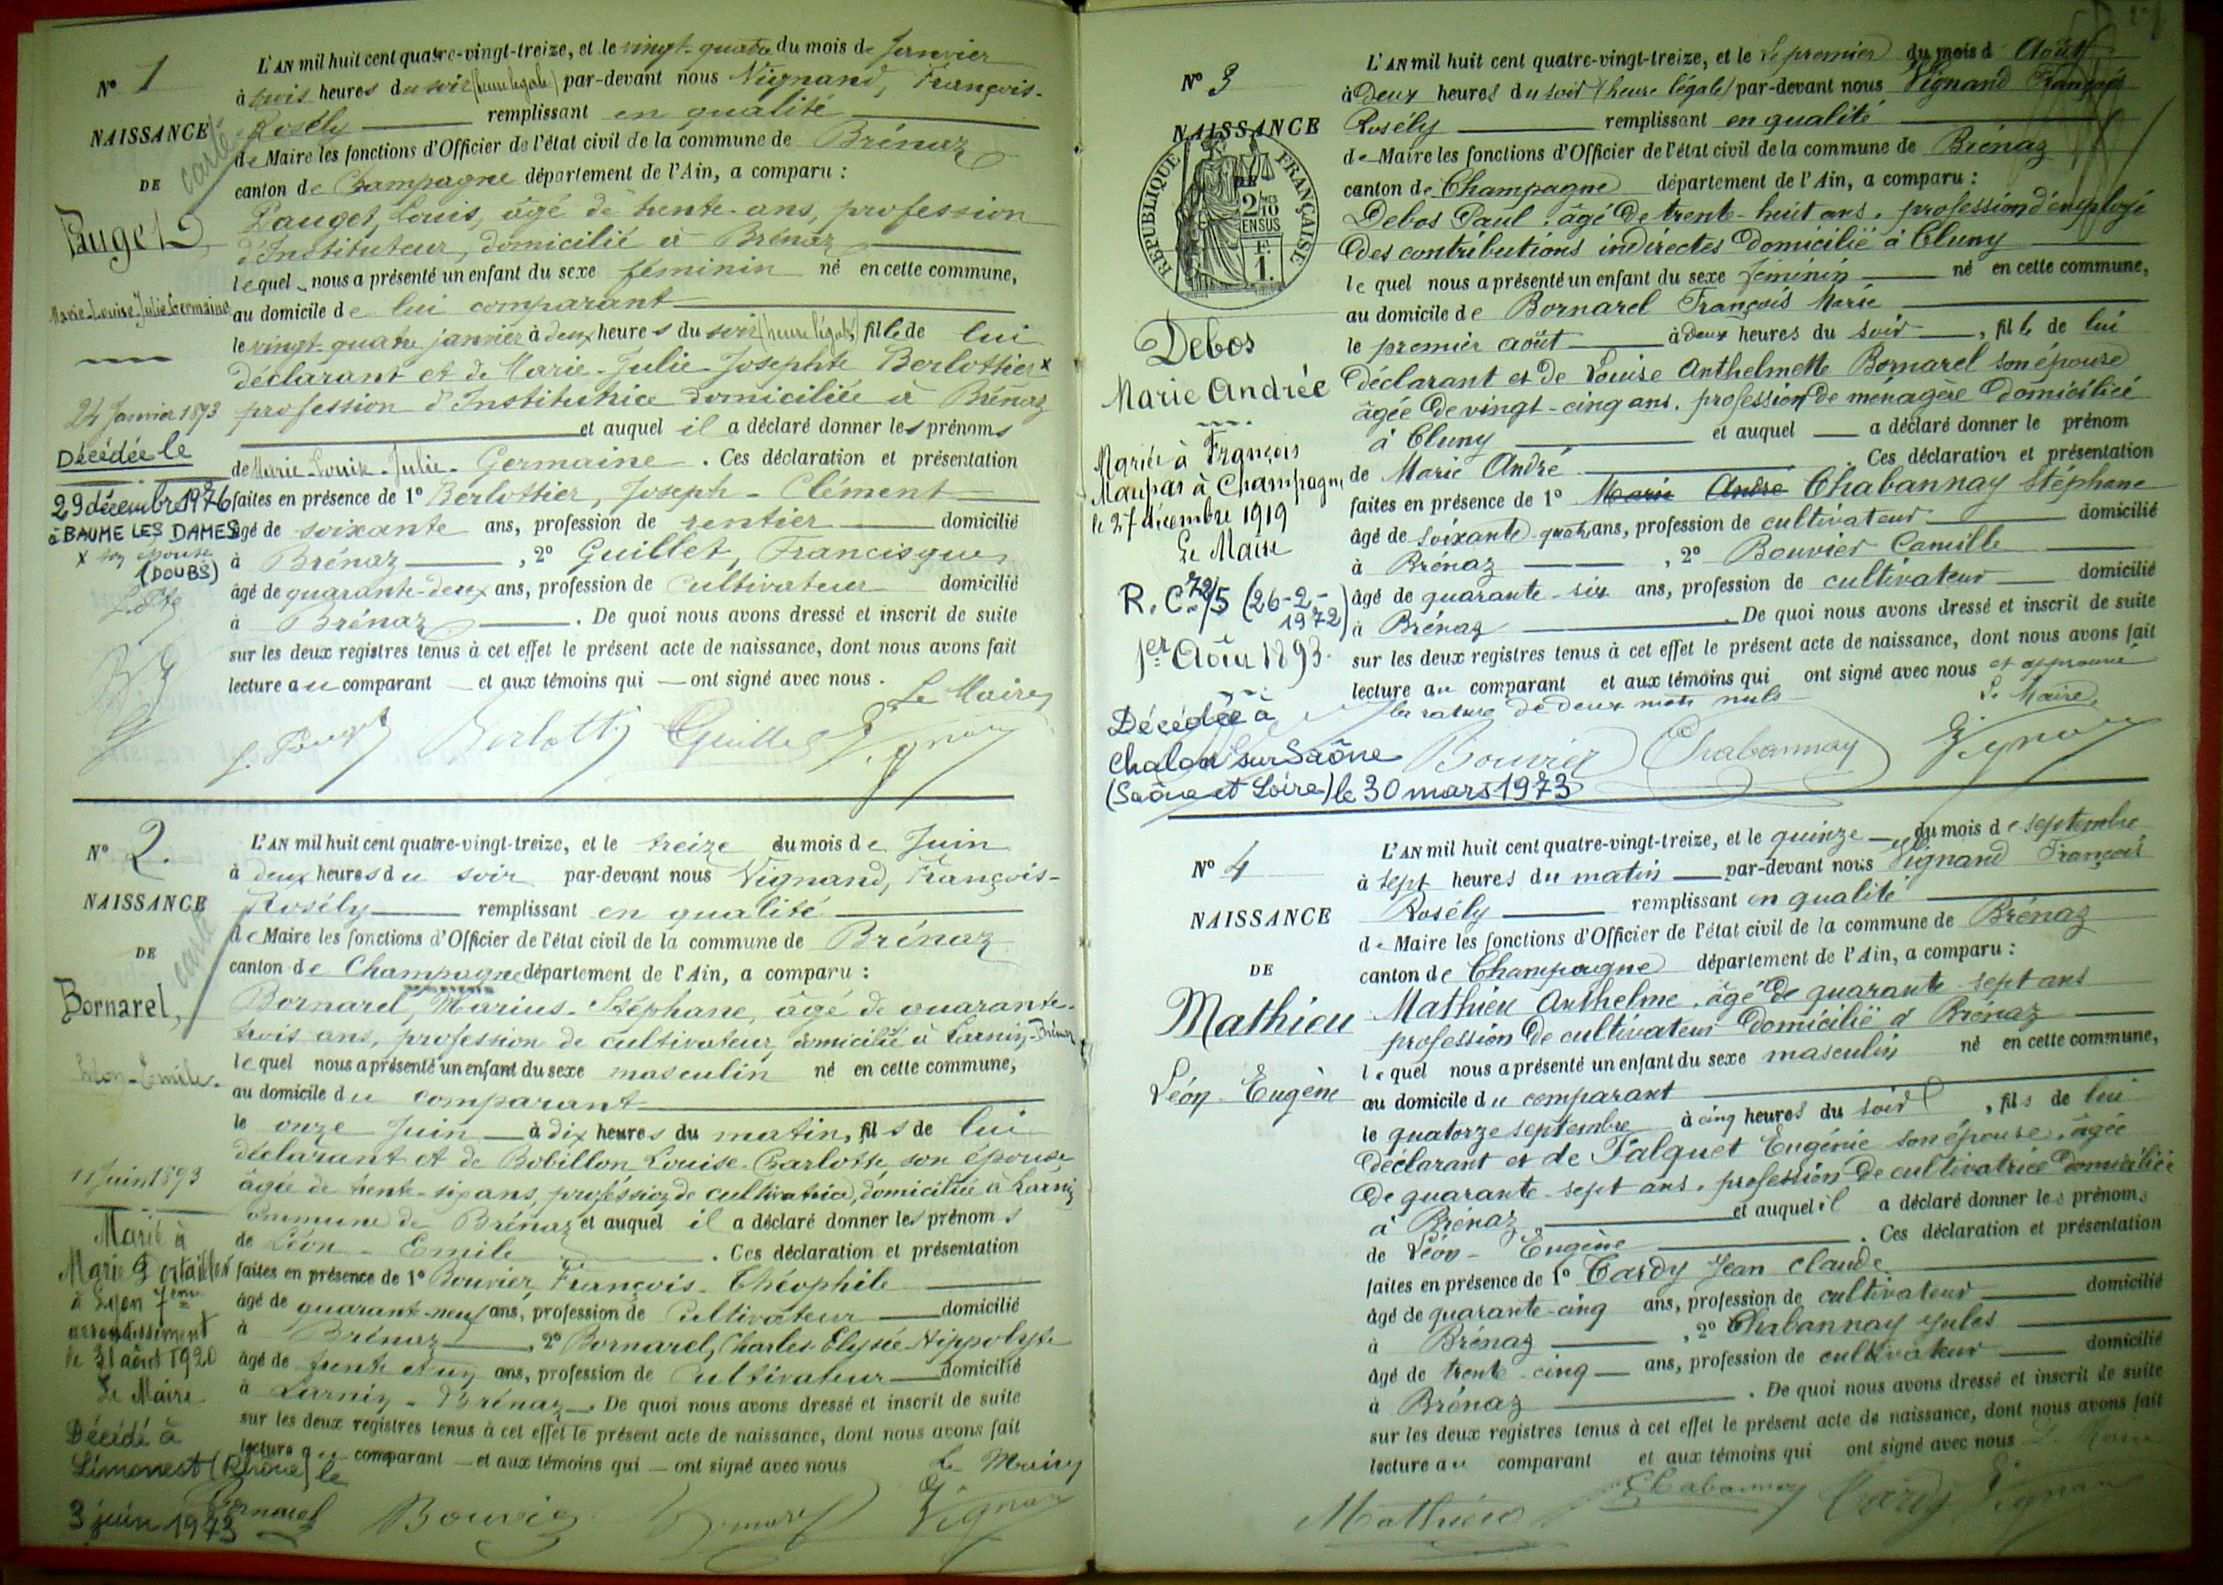 N° 1
NAISSANCE
DE
Pauget
Marie-Louise-Julie-Germaine
24 Janvier 1893
Décédée le
29 décembre 1976
à BAUME LES DAMES
x son épouse
(DOUBS)
L'AN mil huit cent quatre-vingt-treize, et le vingt-quatre du mois de Janvier
à trois heures du soir (heure légale) par-devant nous Vignand, François-
Rosély remplissant en qualité
de Maire les fonctions d'Officier de l'état civil de la commune de Brénaz
canton de Champagne département de l'Ain, a comparu :
Pauget, Louis, âgé de trente-ans, profession
d'Instituteur, domicilié à Brénaz
lequel nous a présenté un enfant du sexe féminin né en cette commune,
au domicile de lui comparant
le vingt-quatre janvier à deux heures du soir (heure légale), fille de lui
déclarant et de Marie-Julie-Josephte Berlottier x
profession d'Institutrice domiciliée à Brénaz
et auquel il a déclaré donner les prénoms
de Marie-Louise-Julie-Germaine. Ces déclaration et présentation
faites en présence de 1° Berlottier, Joseph-Clément
âgé de soixante ans, profession de rentier domicilié
à Brénaz, 2° Guillet, Francisque
âgé de quarante-deux ans, profession de Cultivateur domicilié
à Brénaz. De quoi nous avons dressé et inscrit de suite
sur les deux registres tenus à cet effet le présent acte de naissance, dont nous avons fait
lecture au comparant et aux témoins qui ont signé avec nous.
Le Maire
N° 2.
NAISSANCE
DE
Bornarel,
Léon-Emile.
11 Juin 1893
Marié à
à Lyon 7ème
arrondissement
le 31 août 1920
Le Maire
Décédé à
Limonest (Rhône) le
3 juin 1973
L'AN mil huit cent quatre-vingt-treize, et le treize du mois de Juin
à deux heures du soir par-devant nous Vignand, François-
Rosély remplissant en qualité
de Maire les fonctions d'Officier de l'état civil de la commune de Brénaz
canton de Champagne département de l'Ain, a comparu :
Bornarel, Marius-Stéphane, âgé de quarante-
trois ans, profession de cultivateur, domicilié à Larniz-Brénaz
lequel nous a présenté un enfant du sexe masculin né en cette commune,
au domicile du comparant
le onze Juin à dix heures du matin, fils de lui
déclarant et de Bobillon Louise-Charlotte, son épouse
âgée de trente-six ans, profession de cultivatrice, domiciliée à Larniz
commune de Brénaz et auquel il a déclaré donner les prénoms
de Léon-Emile. Ces déclaration et présentation
faites en présence de 1° Bouvier, François-Théophile
âgé de quarante-neuf ans, profession de Cultivateur domicilié
à Brénaz, 2° Bornarel, Charles-Elysée-Hippolyte
âgé de trente et un ans, profession de Cultivateur domicilié
à Larniz-Brénaz. De quoi nous avons dressé et inscrit de suite
sur les deux registres tenus à cet effet le présent acte de naissance, dont nous avons fait
lecture au comparant et aux témoins qui ont signé avec nous
Le Maire
Bornarel Bouvier Bornarel Vignand
N° 3
NAISSANCE
DE
RÉPUBLIQUE FRANÇAISE
2/10
EN SUS
1.
Debos
Marie Andrée
Mariée à François
Maupas à Champagne
le 27 décembre 1919
Le Maire
R.C. 72/5 (26-2-
1972)
1er Août 1893.
Décédée à
Chalon sur Saône
(Saône et Loire) le 30 mars 1973
L'AN mil huit cent quatre-vingt-treize, et le le premier du mois d Août
à deux heures du soir (heure légale) par-devant nous Vignand François
Rosély remplissant en qualité
de Maire les fonctions d'Officier de l'état civil de la commune de Brénaz
canton de Champagne département de l'Ain, a comparu :
Debos Paul, âgé de trente-huit ans, profession d'employé
des contributions indirectes domicilié à Cluny
lequel nous a présenté un enfant du sexe féminin né en cette commune,
au domicile de Bornarel François Marie
le premier août à deux heures du soir, fille de lui
déclarant et de Louise Anthelmette Bornarel son épouse
âgée de vingt-cinq ans, profession de ménagère domiciliée
à Cluny et auquel a déclaré donner le prénom
de Marie André. Ces déclaration et présentation
faites en présence de 1° Marie André Chabannay Stéphane
âgé de soixante-quatre ans, profession de cultivateur domicilié
à Brénaz, 2° Bouvier Camille
âgé de quarante-six ans, profession de cultivateur domicilié
à Brénaz. De quoi nous avons dressé et inscrit de suite
sur les deux registres tenus à cet effet le présent acte de naissance, dont nous avons fait
lecture au comparant et aux témoins qui ont signé avec nous et approuvé
la rature de deux mots nuls
Le Maire
Bouvier Chabannay Vignand
N° 4
NAISSANCE
DE
Mathieu
Léon-Eugène
L'AN mil huit cent quatre-vingt-treize, et le quinze du mois de septembre
à sept heures du matin par-devant nous Vignand François
Rosély remplissant en qualité
de Maire les fonctions d'Officier de l'état civil de la commune de Brénaz
canton de Champagne département de l'Ain, a comparu :
Mathieu Anthelme, âgé de quarante-sept ans
profession de cultivateur domicilié à Brénaz
lequel nous a présenté un enfant du sexe masculin né en cette commune,
au domicile du comparant
le quatorze septembre à cinq heures du soir, fils de lui
déclarant et de Falquet Eugénie son épouse, âgée
de quarante-sept ans, profession de cultivatrice domiciliée
à Brénaz et auquel il a déclaré donner les prénoms
de Léon-Eugène. Ces déclaration et présentation
faites en présence de 1° Tardy Jean Claude
âgé de quarante-cinq ans, profession de cultivateur domicilié
à Brénaz, 2° Chabannay Jules
âgé de trente-cinq ans, profession de cultivateur domicilié
à Brénaz. De quoi nous avons dressé et inscrit de suite
sur les deux registres tenus à cet effet le présent acte de naissance, dont nous avons fait
lecture au comparant et aux témoins qui ont signé avec nous Le Maire
Mathieu Chabannay Tardy Vignand